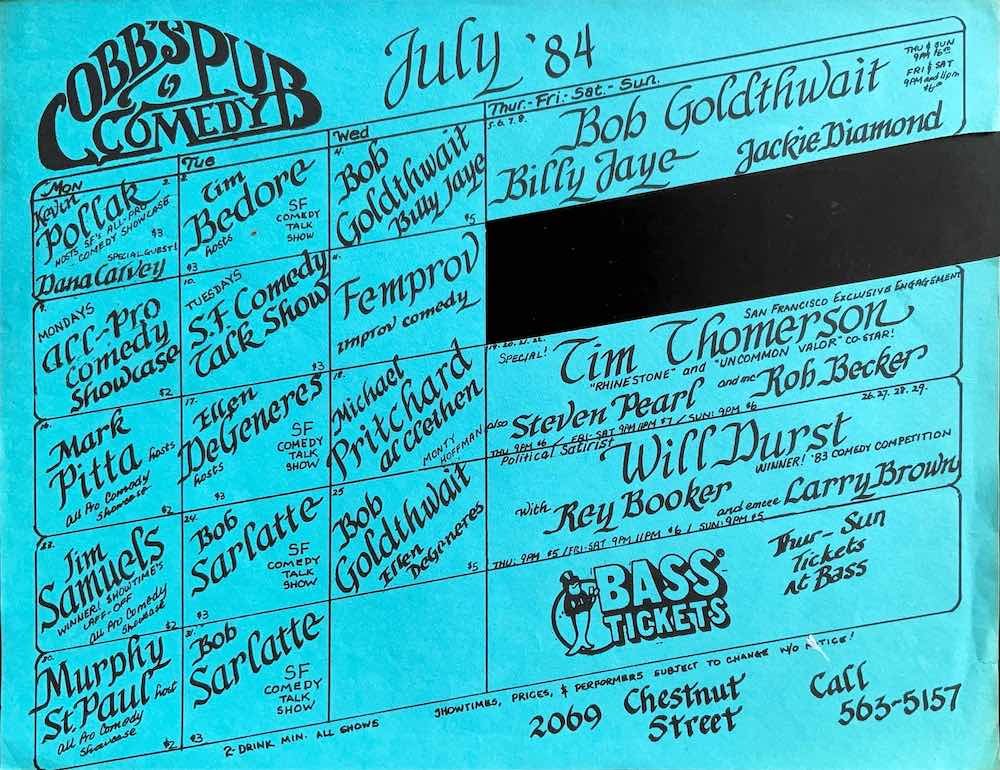 COBB'S PUB
COMEDY
July '84
Mon
2.
Kevin
Pollak
HOSTS SF'S ALL-PRO
COMEDY SHOWCASE
$3
SPECIAL GUEST!
Dana Carvey
Tue
3.
Tim
Bedore
hosts
SF
COMEDY
TALK
SHOW
$3
Wed
4.
Bob
Goldthwait
Billy Jaye
$5
Thur.-Fri.-Sat.-Sun.
5. 6. 7. 8.
Bob Goldthwait
Billy Jaye
Jackie Diamond
THU & SUN
9PM $6.00
FRI & SAT
9PM and 11pm
9.
MONDAYS
All-Pro
Comedy
Showcase
$2
10.
TUESDAYS
S.F. Comedy
Talk Show
$3
11.
Femprov
improv comedy
19. 20. 21. 22.
SPECIAL!
SAN FRANCISCO EXCLUSIVE ENGAGEMENT
Tim Thomerson
"RHINESTONE" and "UNCOMMON VALOR" CO-STAR!
also Steven Pearl and mc Rob Becker
THU 9PM $6 / FRI-SAT 9PM 11PM $7 / SUN: 9PM $6
16.
Mark
Pitta hosts
All Pro Comedy
Showcase
$2
17.
Ellen
DeGeneres
hosts
SF
COMEDY
TALK
SHOW
$3
18.
Michael
Pritchard
al clethen
MONTY
HOFFMAN
Political Satirist
26. 27. 28. 29.
Will Durst
WINNER! '83 COMEDY COMPETITION
with Rey Booker and emcee Larry Brown
THU: 9PM $5 / FRI-SAT 9PM 11PM $6 / SUN: 9PM $5
23.
Jim
Samuels
WINNER! SHOWTIME'S
LAFF-OFF
All Pro Comedy
Showcase
$2
24.
Bob
Sarlatte
SF
COMEDY
TALK
SHOW
$3
25
Bob
Goldthwait
Ellen
DeGeneres
$5
BASS
TICKETS
Thur-Sun
Tickets
at Bass
30.
Murphy
St. Paul host
All Pro Comedy
Showcase
$2
31.
Bob
Sarlatte
SF
COMEDY
TALK
SHOW
$3
2-DRINK MIN. ALL SHOWS
SHOWTIMES, PRICES, & PERFORMERS SUBJECT TO CHANGE W/O NOTICE!
2069 Chestnut
Street
Call
563-5157